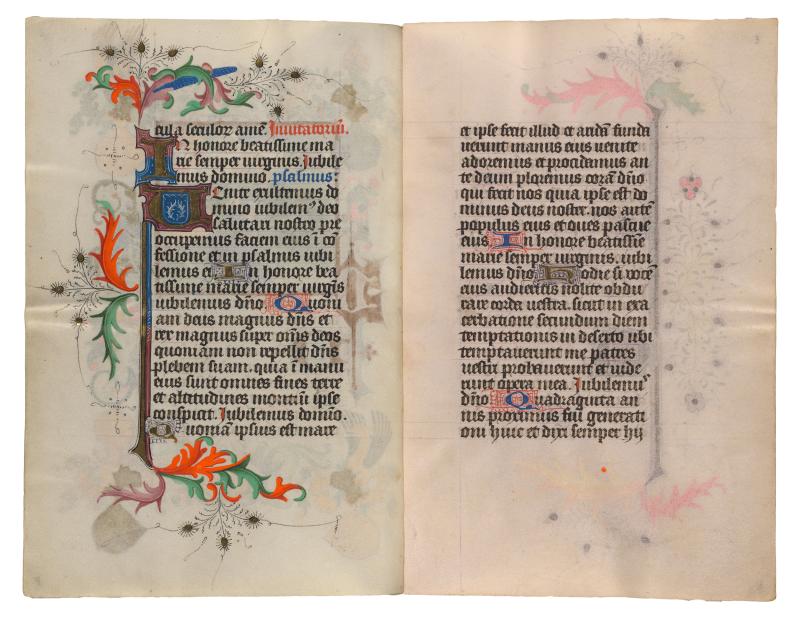 cula seculoꝝ amē. Inuitatoriū.
In honore beatissime ma
rie semper uirginis. Iubile
mus domino. psalmus:
Uenite exultemus do
mino iubilemꝰ deo
salutari nostro pre
occupemus faciem eius ī cō
fessione et in psalmis iubi
lemus ei In honore bea
tissime marie semper uirgīs
iubilemus dño. Quoni
am deus magnus dñs et
rex magnus super om̄s deos
quoniam non repellit dñs
plebem suam. quia ī manu
eius sunt omnes fines terre
et altitudines montiū ipse
conspicit. Iubilemus domino.
Quoniam ipsius est mare
et ipse fecit illud et aridā funda
uerunt manus eius uenite
adoremus et procidamus an
te deum ploremus corā dño
qui fecit nos quia ipse est do
minus deus noster. nos autē
populus eius et oues pascue
eius In honore beatissime
marie semper uirginis. iubi
lemus dño Hodie si uocē
eius audieritis nolite obdu
rare corda uestra. sicut in exa
cerbatione secundum diem
temptationis in deserto ubi
temptauerunt me patres
uestri probauerunt et uide
runt opera mea. Iubilemuˢ
dño Quadraginta an
nis proximus fui generati
oni huic et dixi semper hij